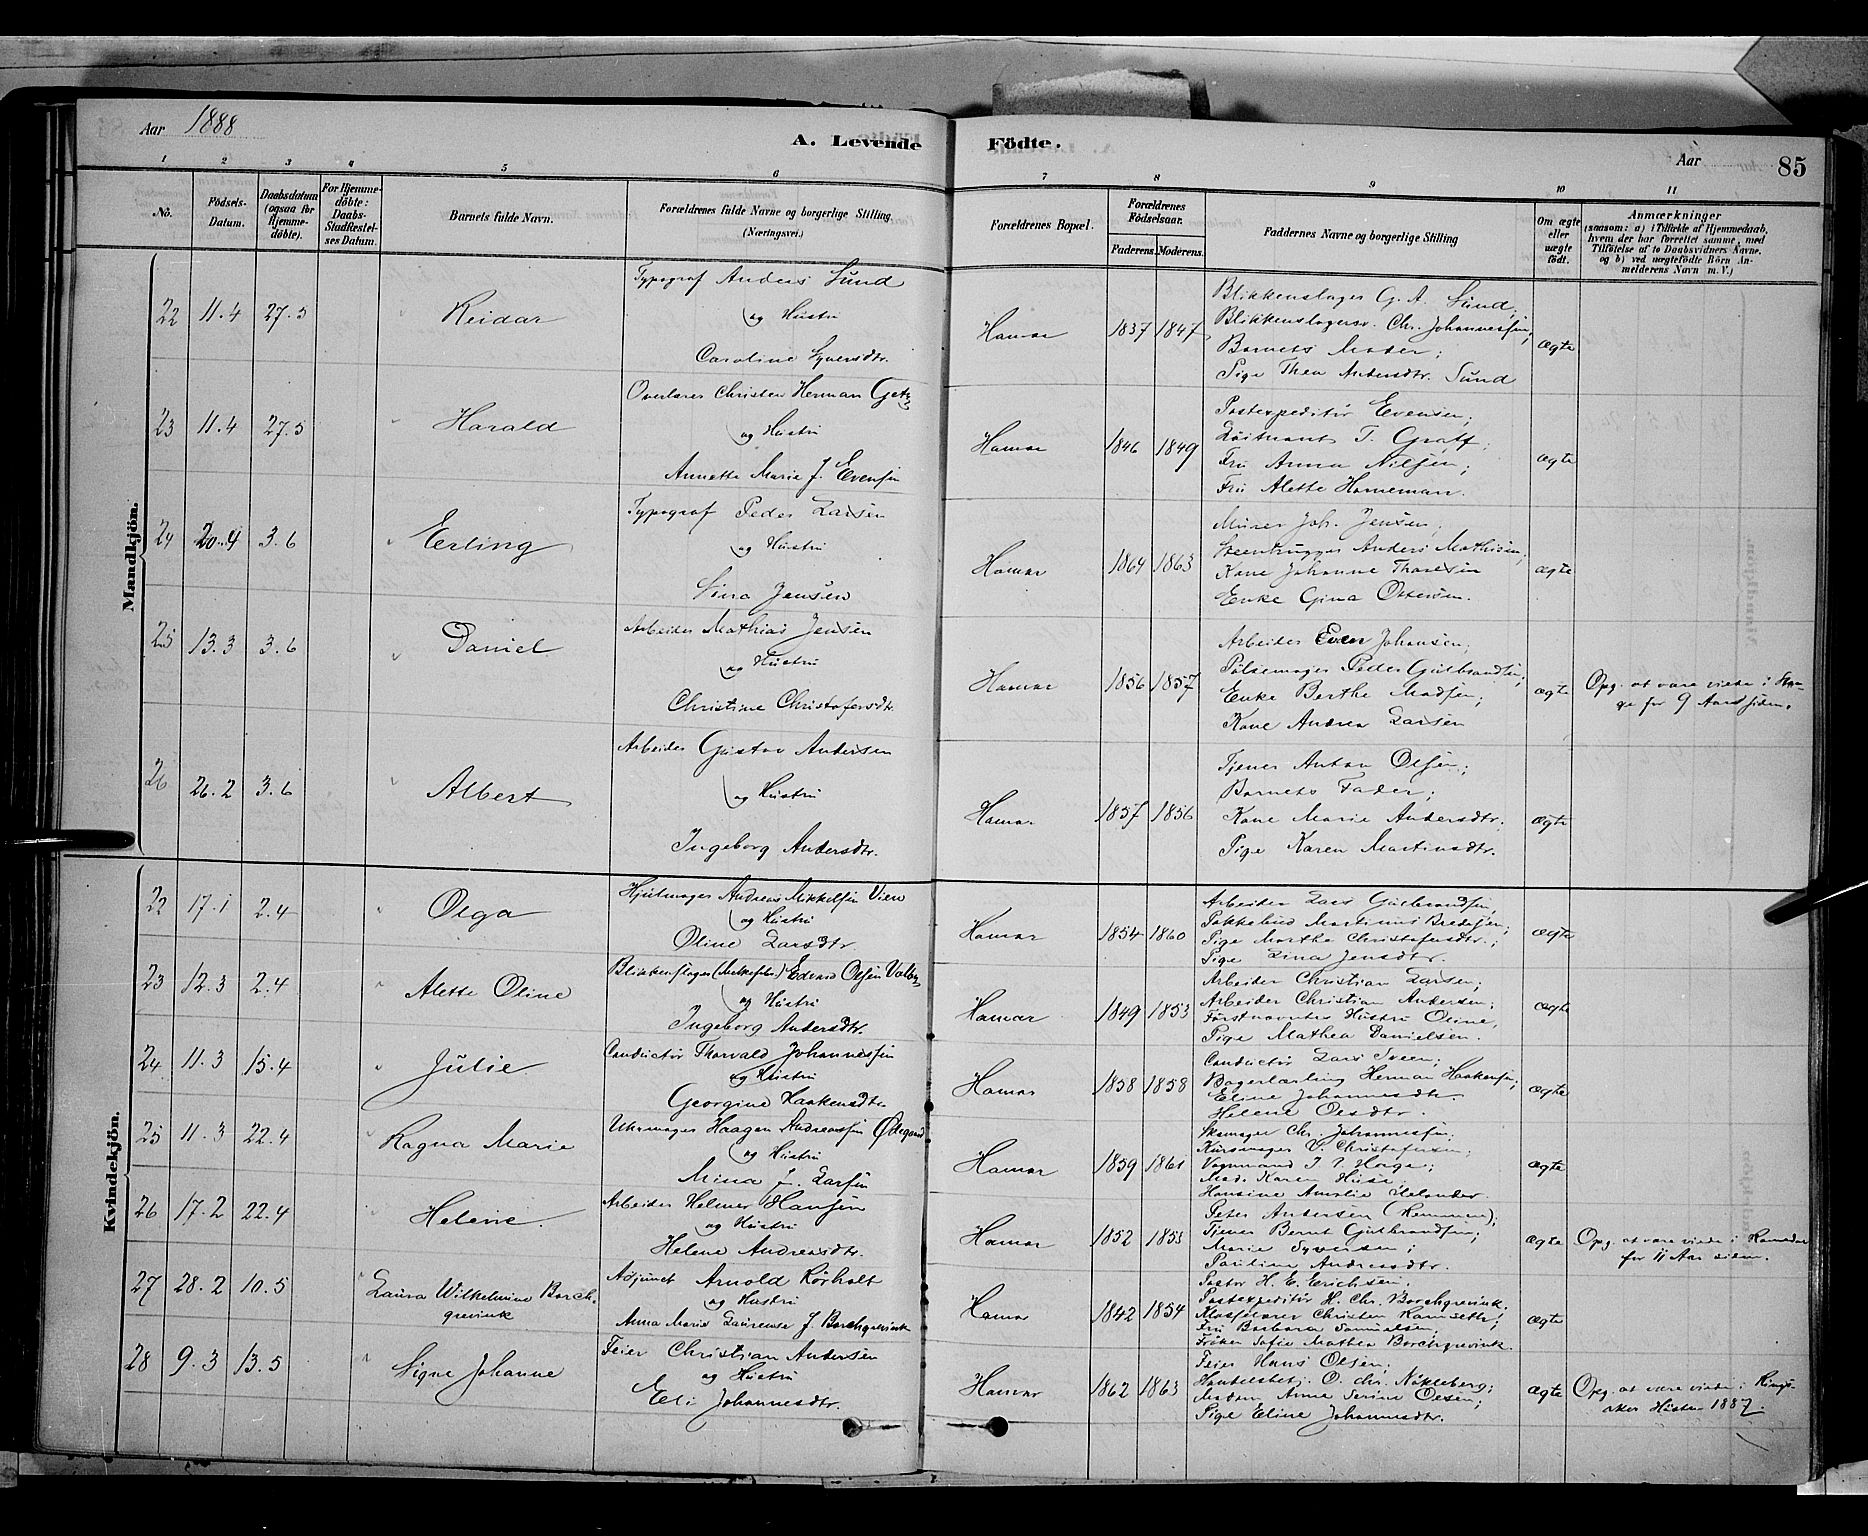 Aar 1888
A. Levende Födte.
Aar
85
1 2 3 4 5 6 7 8 9 10 11
No.
Födsels-Datum.
Daabsdatum (ogsaa for Hjemme-döbte).
For Hjemme-döbte: Daabs-Stadfæstel-ses Datum.
Barnets fulde Navn.
Forældrenes fulde Navne og borgerlige Stilling.
(Næringsvei.)
Forældrenes Bopæl.
Forældrenes Födselsaar.
Faderens. Moderens.
Faddernes Navne og borgerlige Stilling
Om ægte eller uægte födt.
Anmærkninger
(saasom: a) i Tilfælde af Hjemmedaab,
hvem der har forrettet samme, med
Tilföielse af to Daabsvidners Navne,
og b) ved uægtefödte Börn An-
melderens Navn m. V.)
Mandkjön.
22 11.4 27.5 Reidar
Typograf Anders Sund
og Hustru
Caroline Syversdtr.
Hamar 1837 1847
Blikkenslager G. A. Sund;
Blikkenslagersv. Chr. Johannessen;
Barnets Moder;
Pige Thea Andersdtr. Sund
ægte
23 11.4 27.5 Harald
Overlærer Christen Herman Getz
og Hustru
Annette Marie J. Evensen
Hamar 1846 1849
Postexpeditör Evensen;
Löitnant T. Graff;
Fru Anna Nilsen;
Fru Alette Horneman.
ægte
24 20.4 3.6 Erling
Typograf Peder Larsen
og Hustru
Sina Jensen
Hamar 1864 1863
Murer Joh. Jensen;
Steenhugger Anders Mathisen;
Kone Johanne Thoresen
Enke Gina Ottersen.
ægte
25 13.3 3.6 Daniel
Arbeider Mathias Jensen
og Hustru
Christine Christofersdtr.
Hamar 1856 1857
Arbeider Even Johansen;
Pölsemager Peder Gulbrandsen;
Enke Berthe Madsen;
Kone Andrea Larsen
ægte
Opg. at være viede i Stan-
ge for 9 Aar siden.
26 26.2 3.6 Albert
Arbeider Gustav Andersen
og Hustru
Ingeborg Andersdtr.
Hamar 1857 1856
Tjener Anton Olsen;
Barnets Fader;
Kone Marie Andersdtr.
Pige Karen Martinsdtr.
ægte
Kvindekjön.
22 17.1 2.4 Olga
Hjulmager Andreas Mikkelsen Vien
og Hustru
Oline Larsdtr.
Hamar 1854 1860
Arbeider Lars Gulbrandsen,
Pakkebud Martinus Bredesen;
Pige Marthe Christofersdtr.;
Pige Lina Jensdtr.
ægte
23 12.3 2.4 Alette Oline
Blikkenslager Edvard Olsen
og Hustru
Ingeborg Andersdtr.
Hamar 1849 1853
Arbeider Christian Larsen;
Arbeider Christian Andersen;
Förstnævntes Hustru Oline,
Pige Mathea Danielsen.
ægte
24 11.3 15.4 Julie
Conductör Thorvald Johannessen
og Hustru
Georgine Haakensdtr.
Hamar 1858 1858
Conductör Lars Sveen;
Bagerlærling Herman Haakensen;
Eline Johannesdtr.
Helene Olsdtr.
ægte
25 11.3 22.4 Ragna Marie
Uhrmager Haagen Andreassen Ödegaard
og Hustru
Mina J. Larsen
Hamar 1859 1861
Skomager Chr. Johannessen;
Kursmager V. Christofersen;
Vognmand J. P. Horge;
Mad. Karen Huse;
Hansine Amalie Helander.
ægte
26 17.2 22.4 Helene.
Arbeider Helmer Hansen
og Hustru
Helene Andreasdtr.
Hamar 1852 1853
Peter Andersen (Remmen);
Tjener Bernt Gulbrandsen;
Marie Syversen;
Pauline Andreasdtr.
ægte
Opg. at være viede i Romedal
for 11 Aar siden.
27 28.2 10.5 Laura Wilhelmine Borch-
grevink
Adjunct Arnold Rörholt
og Hustru
Anna Marie Laurense J. Borchgrevink
Hamar 1842 1854
Pastor H. E. Erichsen.
Postexpeditör H. Chr. Borchgrevink.
Klokker Christen Ramseth;
Fru Barbara Samuelsen;
Fröken Sofie Mathea Borchgrevink.
ægte
28 9.3 13.5 Signe Johanne
Feier Christian Andersen
og Hustru
Eli Johannesdtr.
Hamar 1862 1863
Feier Hans Olsen.
Handelsbetj. O. Chr. Nökleberg;
Madam Anne Serine Olsen;
Pige Eline Johannesdtr.
ægte
Opg. at være viede i Rings-
aker Hösten 1887.